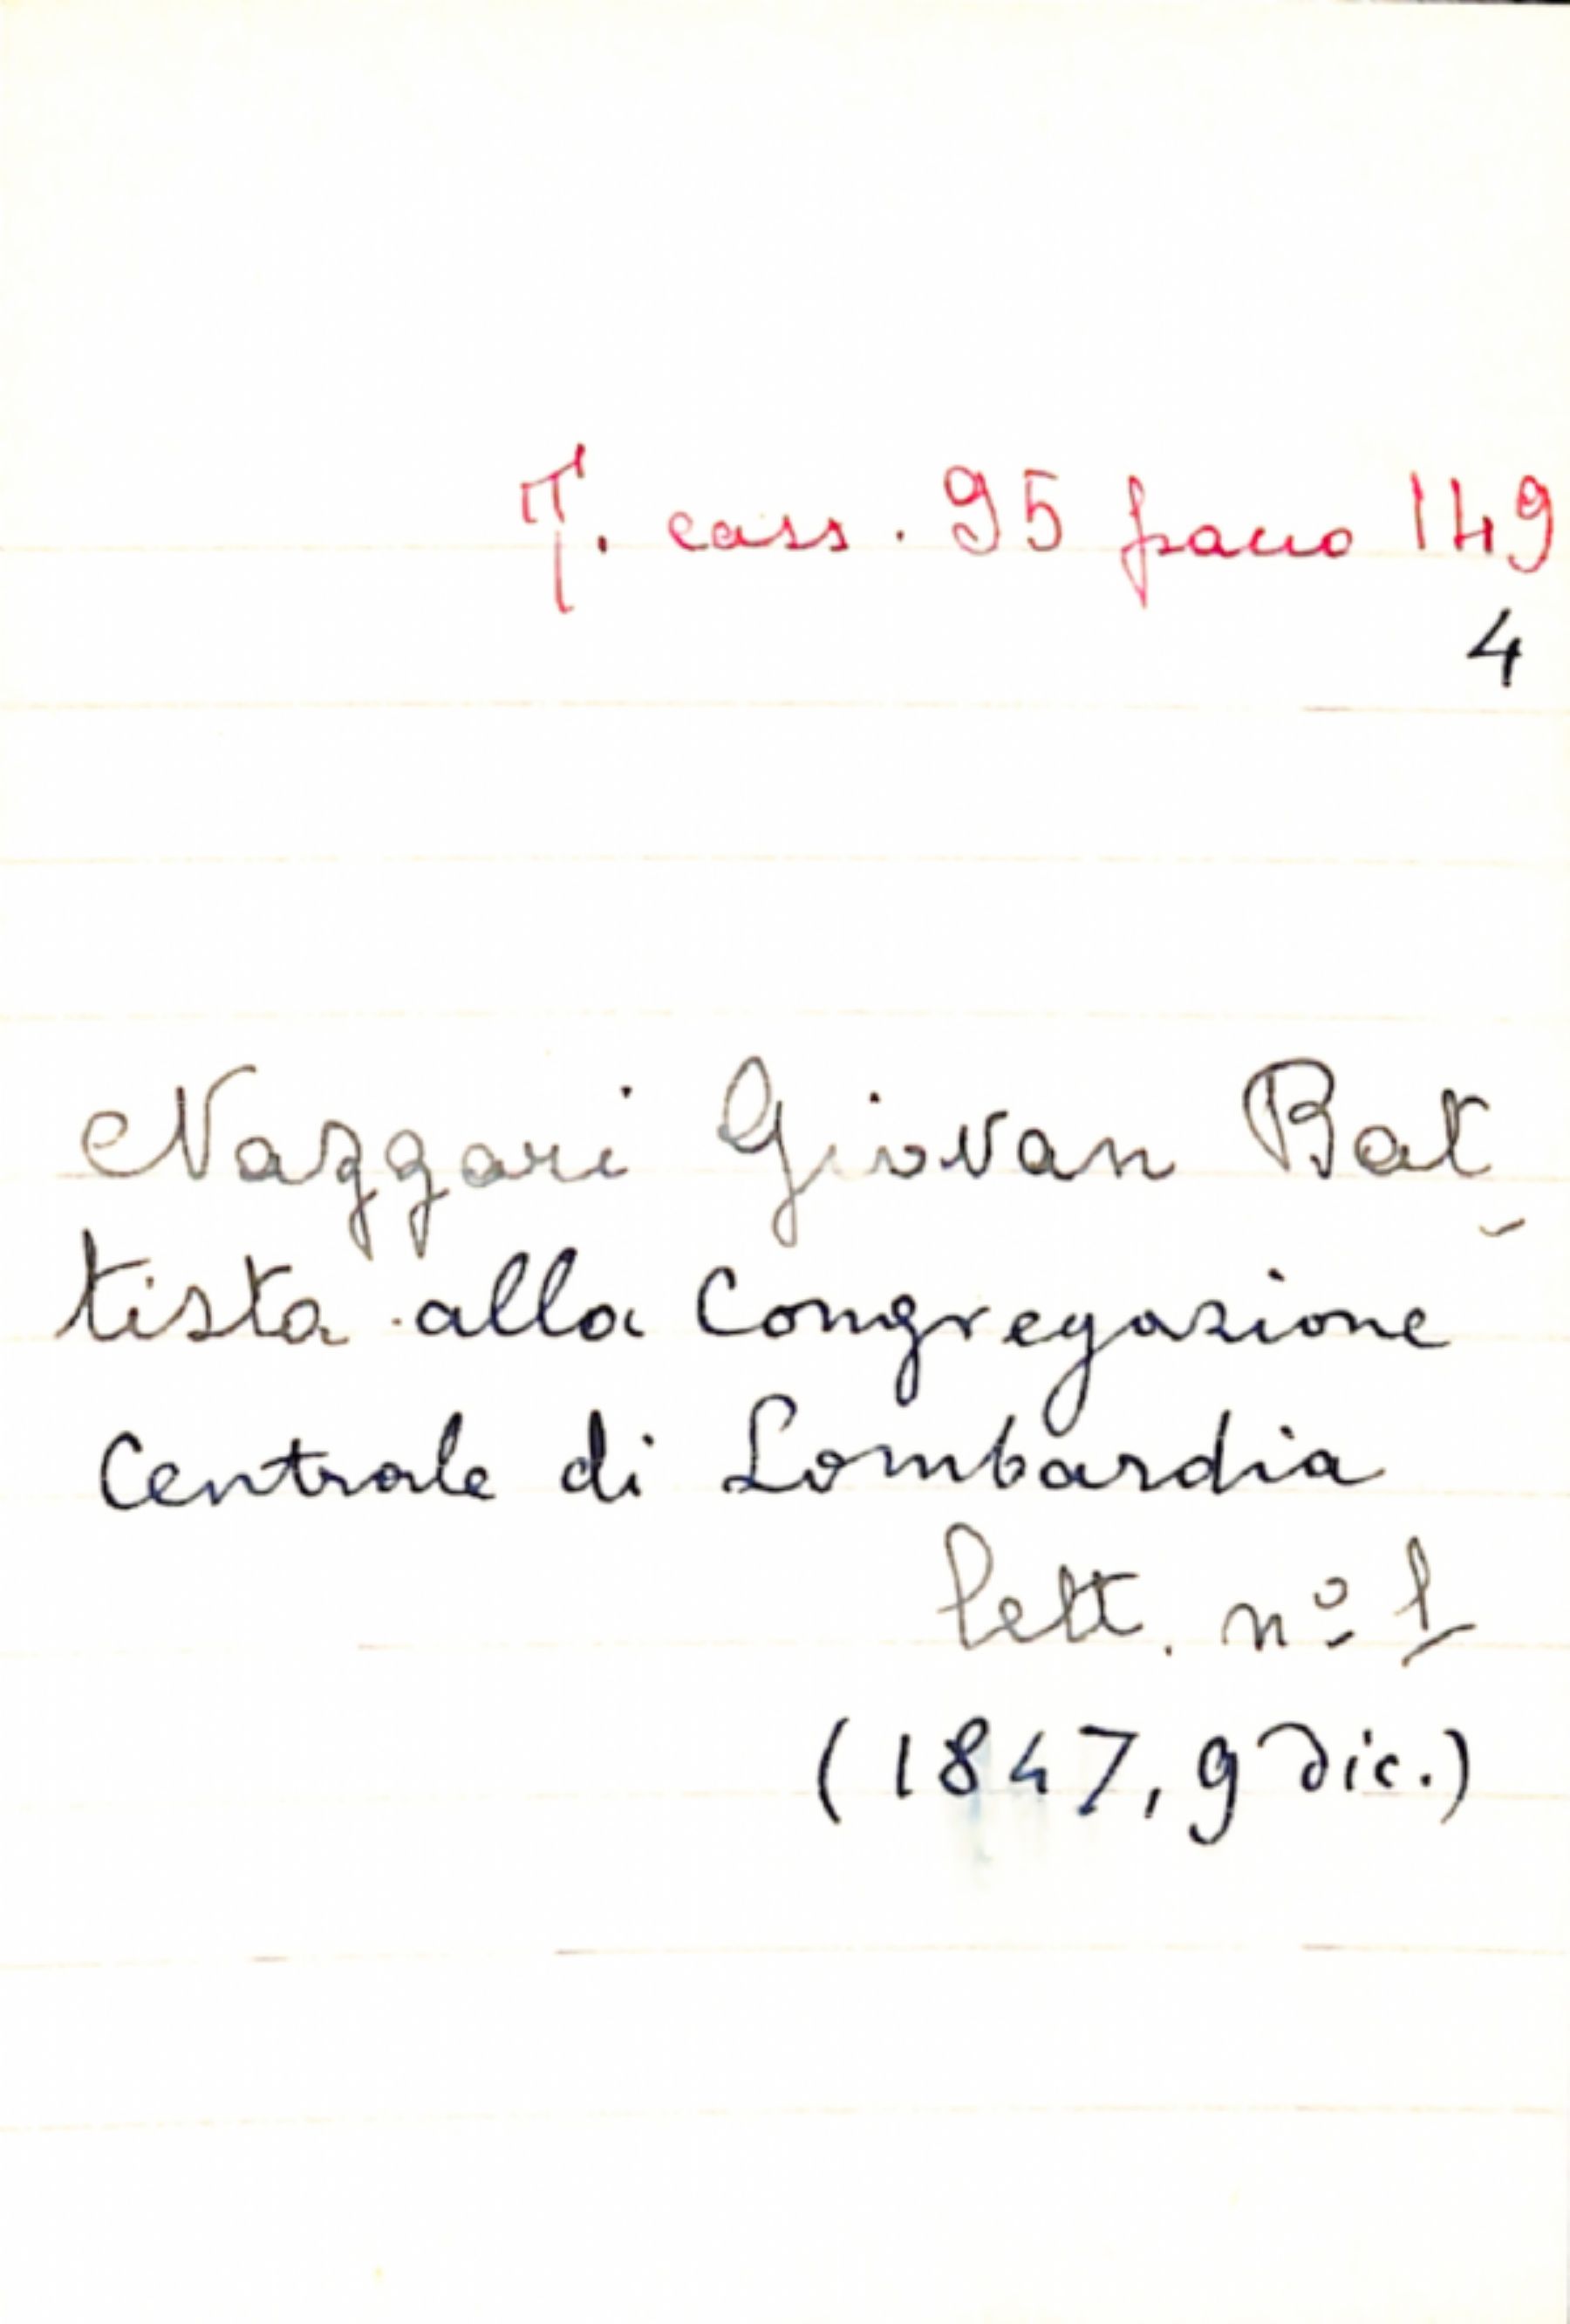 T. cass. 95 pacco 149
4
Nazzari Giovan Bat-
tista alla Congregazione
Centrale di Lombardia
lett. nº 1
(1847, 9 dic.)